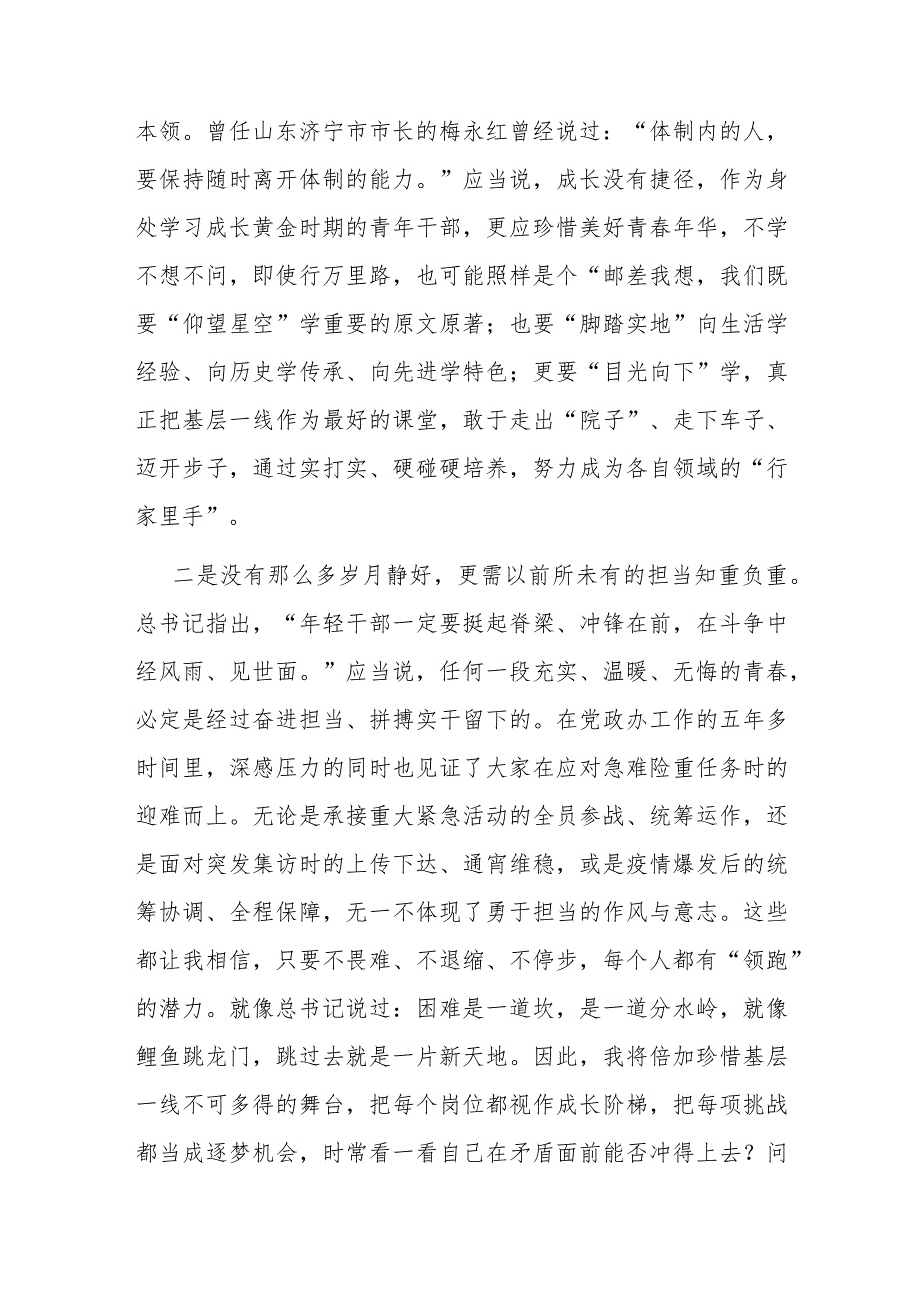 本领。曾任山东济宁市市长的梅永红曾经说过：“体制内的人，
要保持随时离开体制的能力。”应当说，成长没有捷径，作为身
处学习成长黄金时期的青年干部，更应珍惜美好青春年华，不学
不想不问，即使行万里路，也可能照样是个“邮差我想，我们既
要“仰望星空”学重要的原文原著；也要“脚踏实地”向生活学
经验、向历史学传承、向先进学特色；更要“目光向下”学，真
正把基层一线作为最好的课堂，敢于走出“院子”、走下车子、
迈开步子，通过实打实、硬碰硬培养，努力成为各自领域的“行
家里手”。
二是没有那么多岁月静好，更需以前所未有的担当知重负重。
总书记指出，“年轻干部一定要挺起脊梁、冲锋在前，在斗争中
经风雨、见世面。”应当说，任何一段充实、温暖、无悔的青春，
必定是经过奋进担当、拼搏实干留下的。在党政办工作的五年多
时间里，深感压力的同时也见证了大家在应对急难险重任务时的
迎难而上。无论是承接重大紧急活动的全员参战、统筹运作，还
是面对突发集访时的上传下达、通宵维稳，或是疫情爆发后的统
筹协调、全程保障，无一不体现了勇于担当的作风与意志。这些
都让我相信，只要不畏难、不退缩、不停步，每个人都有“领跑”
的潜力。就像总书记说过：困难是一道坎，是一道分水岭，就像
鲤鱼跳龙门，跳过去就是一片新天地。因此，我将倍加珍惜基层
一线不可多得的舞台，把每个岗位都视作成长阶梯，把每项挑战
都当成逐梦机会，时常看一看自己在矛盾面前能否冲得上去？问